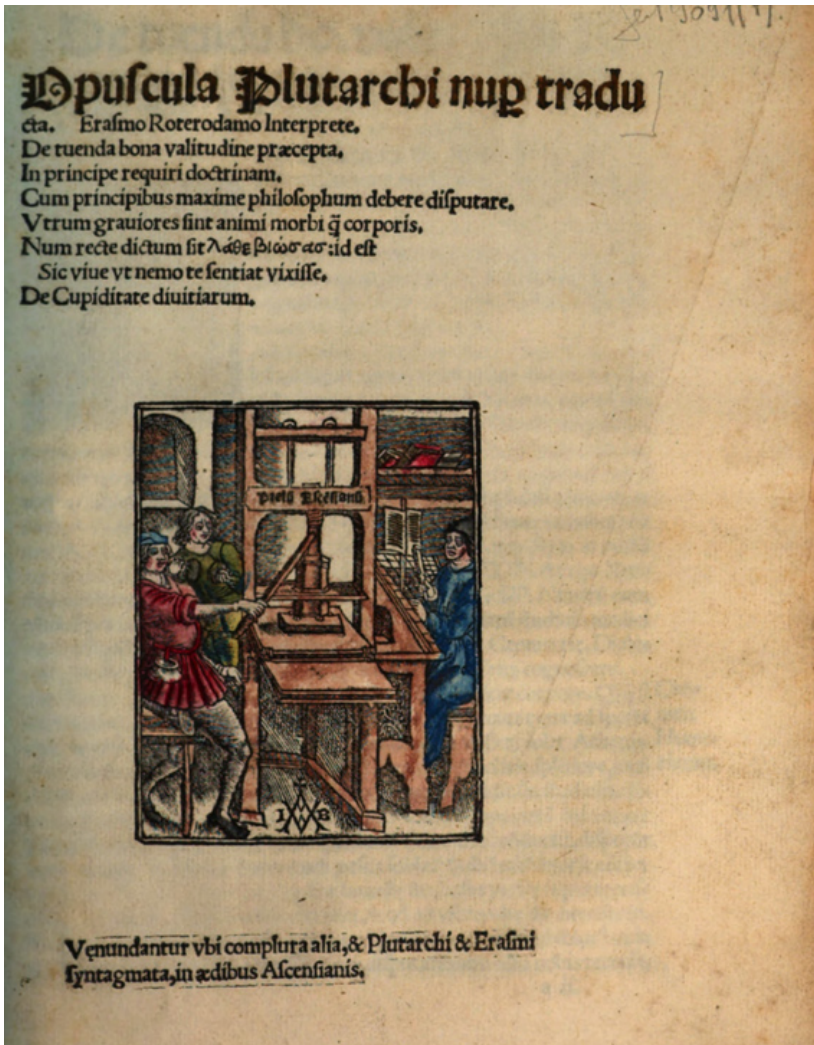 Opuſcula Plutarchi nuꝑ tradu
cta. Eraſmo Roterodamo Interprete.
De tuenda bona valitudine præcepta.
In principe requiri doctrinam.
Cum principibus maxime philoſophum debere diſputare.
Vtrum grauiores ſint animi morbi q̃ corporis.
Num recte dictum ſit λάθε βιώσασ: id eſt
Sic viue vt nemo te ſentiat vixiſſe.
De Cupiditate diuitiarum.
Prelū Aſcēſianū
I B
Vęnundantur vbi complura alia, & Plutarchi & Eraſmi
ſyntagmata, in ædibus Aſcenſianis.